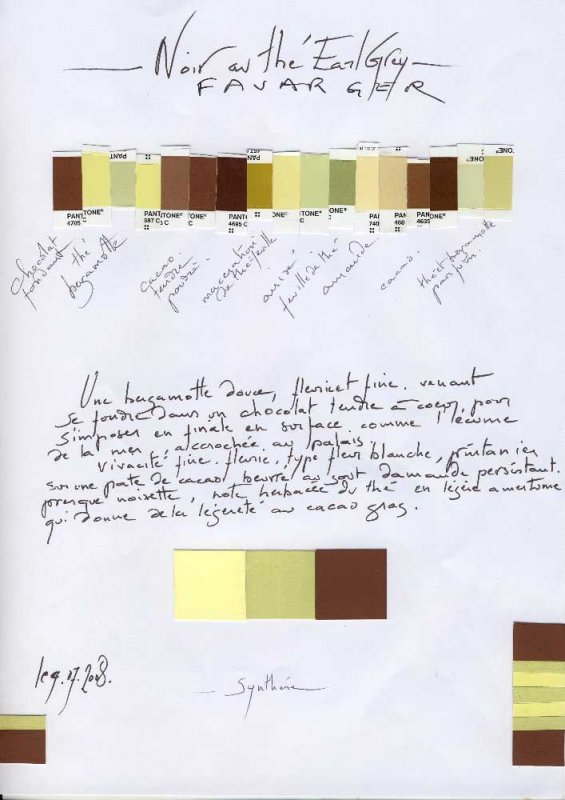 Noir au thé Earl Grey
FAVARGER
PANTONE®
4705
PANT
587 C
4695 C
PANT
740
PANT
468
PANT
4635
TONE®
Chocolat
fondant
thé
bergamotte
cacao
tendre
poudré
macération
de thé feuille
anisé
feuille de thé
amande
cacao
thé et bergamotte
parfum
Une bergamotte douce, fleurie et fine. venant
se fondre dans un chocolat tendre à coeur, pour
s'imposer en finale en surface. comme l'écume
de la mer, accrochée au palais.
Vivacité fine. fleurie, type fleur blanche, printanier
sur une pate de cacao beurré au gout d'amande persistant.
presque noisette, note herbacée du thé en légère amertume
qui donne de la légereté au cacao gras.
le 9.07.2008.
Synthèse